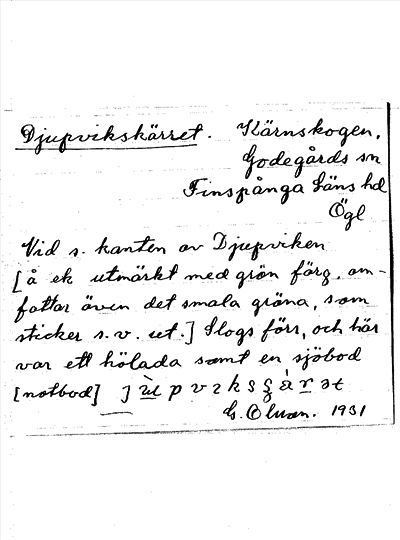 Djupvikskärret. Kärnskogen,
Godegårds sn
Finspånga läns hd
Ögl
Vid s. kanten av Djupviken
[å ek utmärkt med grön färg, om-
fattar även det smala gröna, som
sticker s.v. ut.] Slogs förr, och här
var ett hölada samt en sjöbod
[notbod]
G. Olson. 1931